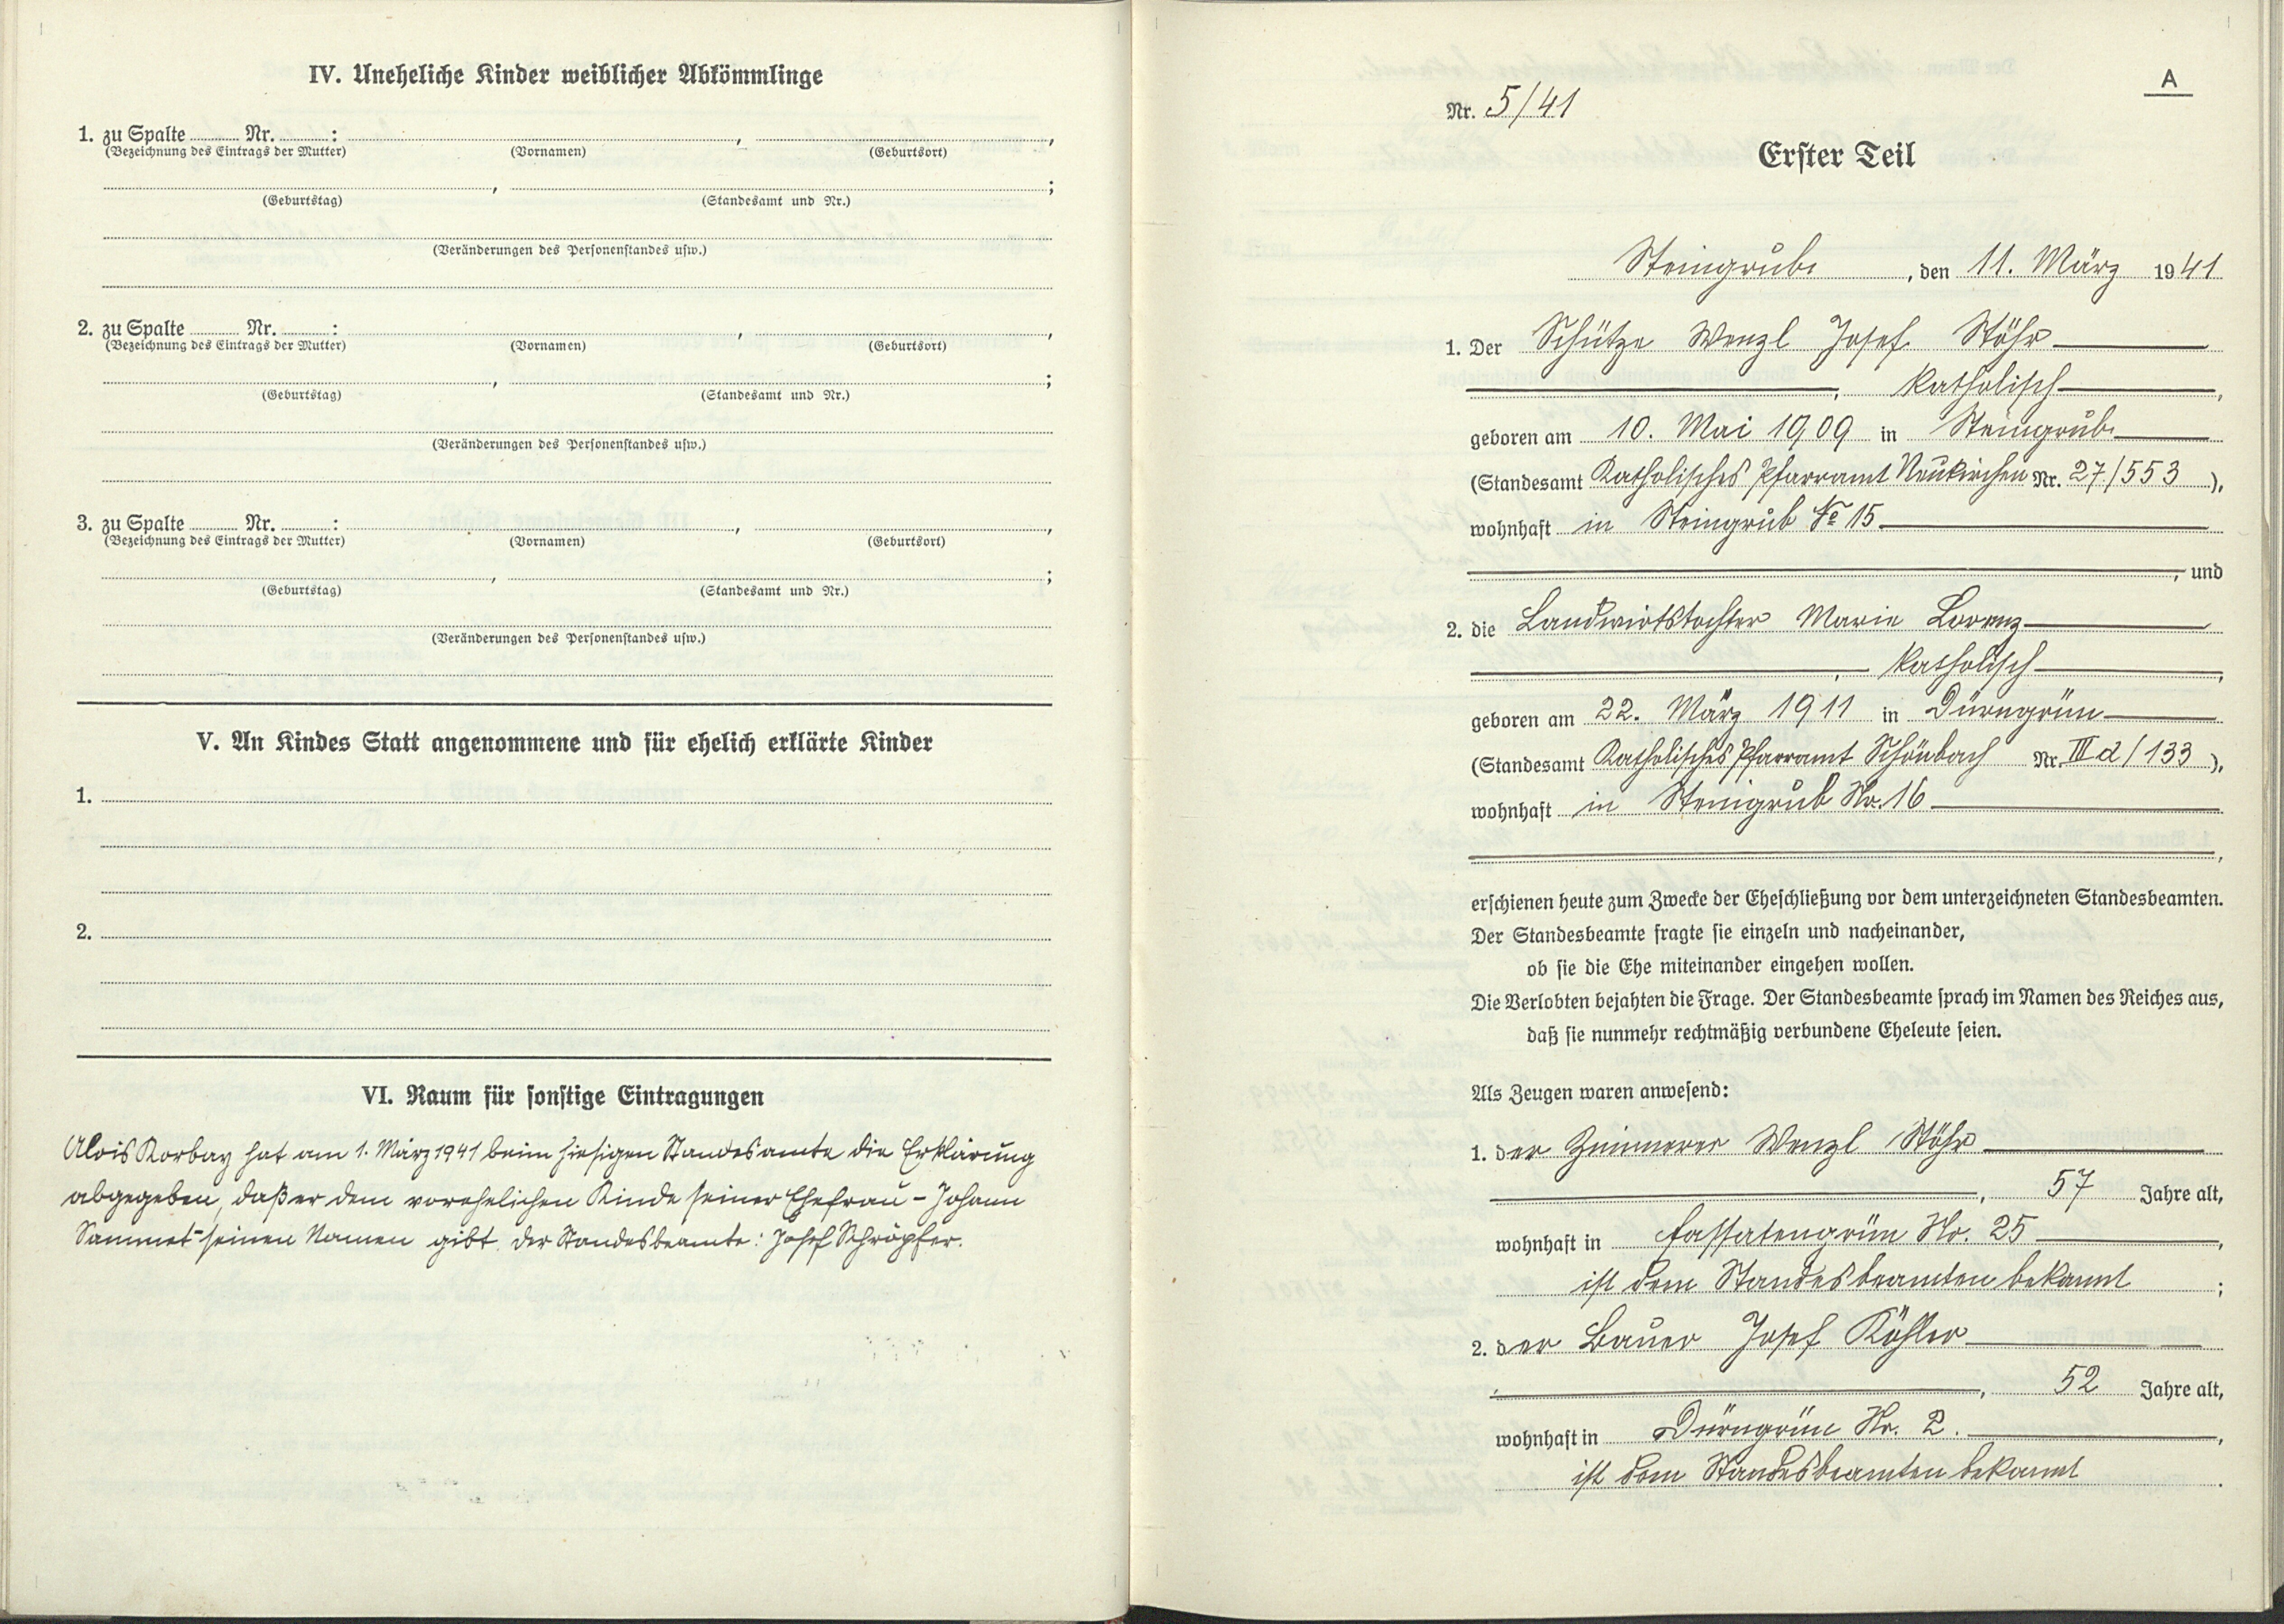 IV. Uneheliche Kinder weiblicher Abkömmlinge
1. zu Spalte ........ Nr. ........ : ........ , ........ ,
(Bezeichnung des Eintrags der Mutter) (Vornamen) (Geburtsort)
........ , ........ ;
(Geburtstag) (Standesamt und Nr.)
(Veränderungen des Personenstandes usw.)
2. zu Spalte ........ Nr. ........ : ........ , ........ ,
(Bezeichnung des Eintrags der Mutter) (Vornamen) (Geburtsort)
........ , ........ ;
(Geburtstag) (Standesamt und Nr.)
(Veränderungen des Personenstandes usw.)
3. zu Spalte ........ Nr. ........ : ........ , ........ ,
(Bezeichnung des Eintrags der Mutter) (Vornamen) (Geburtsort)
........ , ........ ;
(Geburtstag) (Standesamt und Nr.)
(Veränderungen des Personenstandes usw.)
V. An Kindes Statt angenommene und für ehelich erklärte Kinder
1.
2.
VI. Raum für sonstige Eintragungen
Alois Korbay hat am 1. März 1941 beim hiesigen Standesamte die Erklärung
abgegeben, daß er dem vorehelichen Kinde seiner Ehefrau - Johann
Sammet - seinen Namen gibt. Der Standesbeamte: Josef Schröpfer.
A
Nr. 5/41
Erster Teil
Steingrub, den 11. März 1941
1. Der Schütze Wenzl Josef Stöhr
, katholisch,
geboren am 10. Mai 1909 in Steingrub
(Standesamt Katholisches Pfarramt Neukirchen Nr. 27/553),
wohnhaft in Steingrub No 15
, und
2. die Landwirtstochter Marie Lorenz
, katholisch,
geboren am 22. März 1911 in Dürngrün
(Standesamt Katholisches Pfarramt Schönbach Nr. III d/133),
wohnhaft in Steingrub Nr. 16
,
erschienen heute zum Zwecke der Eheschließung vor dem unterzeichneten Standesbeamten.
Der Standesbeamte fragte sie einzeln und nacheinander,
ob sie die Ehe miteinander eingehen wollen.
Die Verlobten bejahten die Frage. Der Standesbeamte sprach im Namen des Reiches aus,
daß sie nunmehr rechtmäßig verbundene Eheleute seien.
Als Zeugen waren anwesend:
1. der Zimmerer Wenzl Stöhr
, 57 Jahre alt,
wohnhaft in Fassatengrün Nr. 25,
ist dem Standesbeamten bekannt;
2. der Bauer Josef Köhler
, 52 Jahre alt,
wohnhaft in Dürngrün Nr. 2.,
ist dem Standesbeamten bekannt.